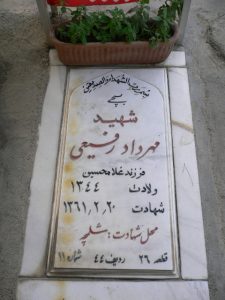 بسیجی
شهید
مهرداد رفیعی
فرزند غلامحسین
ولادت ۱۳۴۴
شهادت ۱۳۶۱٫۲٫۲۰
محل شهادت: شلمچه
قطعه ۲۶ ردیف ۴۴ شماره ۱۱